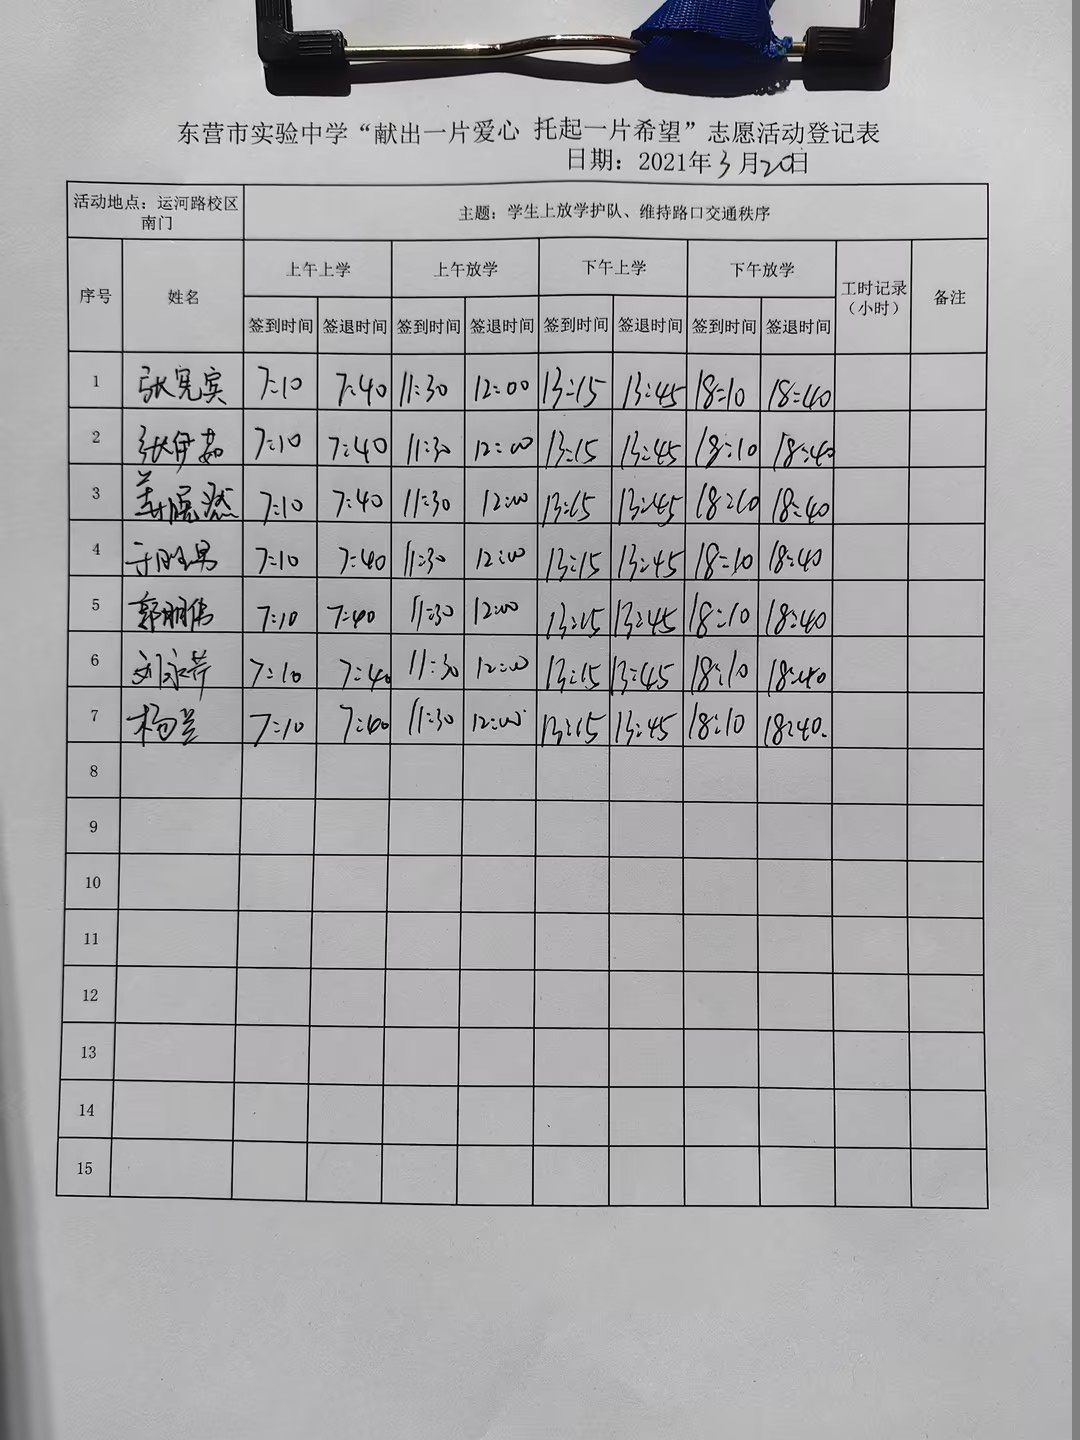 东营市实验中学“献出一片爱心 托起一片希望”志愿活动登记表
日期：2021年3月20日
活动地点：运河路校区南门 主题：学生上放学护队、维持路口交通秩序
序号 姓名 上午上学 上午放学 下午上学 下午放学 工时记录（小时） 备注
签到时间 签退时间 签到时间 签退时间 签到时间 签退时间 签到时间 签退时间
1 张宪宾 7:10 7:40 11:30 12:00 13:15 13:45 18:10 18:40
2 张伊茹 7:10 7:40 11:30 12:00 13:15 13:45 18:10 18:40
3 7:10 7:40 11:30 12:00 13:15 13:45 18:10 18:40
4 于胜男 7:10 7:40 11:30 12:00 13:15 13:45 18:10 18:40
5 郭朋伟 7:10 7:40 11:30 12:00 13:15 13:45 18:10 18:40
6 刘永芹 7:10 7:40 11:30 12:00 13:15 13:45 18:10 18:40
7 杨兰 7:10 7:40 11:30 12:00 13:15 13:45 18:10 18:40.
8
9
10
11
12
13
14
15